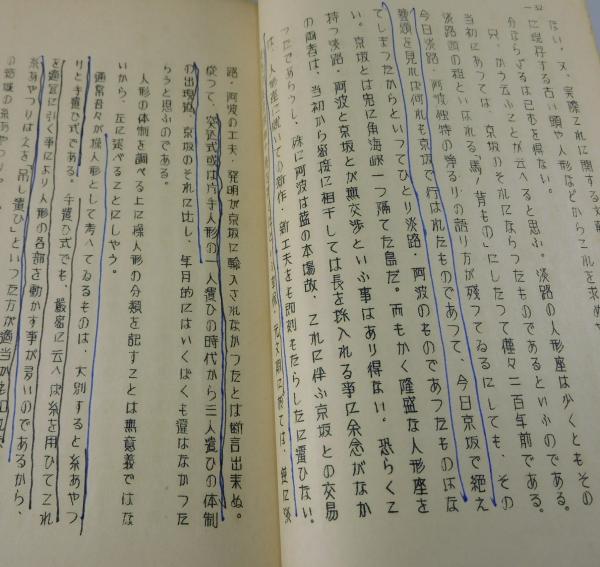 ない。又、実際これに関する
に残存する古い頭や人形などからこれを求め
分ならざるは已むを得ない。
只、かう云ふことが云へると思ふ。淡路の人形座は少くともその
当初にあつては、京坂のそれにならつたものであるといふのである。
淡路頭の祖といはれる「馬ノ背もの」にしたつて僅々二百年前である。
今日淡路・阿波独特の浄るりの語り方が残つてゐるにしても、その
藝題を見れば何れも京坂で行はれたものであつて、今日京坂で絶え
てしまつたからといつてひとり淡路・阿波のものであつたものはな
い。京坂とは鬼に角海峡一つ隔てた島だ。而もかく隆盛な人形座を
持つ淡路・阿波と京坂とが無交渉といふ事はあり得ない。恐らくこ
の両者は、当初から密接に相干しては長を採入れる事に余念がなか
つたであらうし、殊に阿波は藍の本場故、これに伴ふ京坂との交易
は、人形座に就いての新作、新工夫をも即刻もたらしたに違ひない。
路・阿波の工夫・発明が京坂に輸入されなかつたとは断言出来ぬ。
従つて、突込式或は片手人形の一人遣ひの時代から三人遣ひの体制
の出現は、京坂のそれに比し、年月的にはいくばくも違はなかつた
らうと思ふのである。
人形の体制を調べる上に操人形の分類を記すことは無意義ではな
いから、左に述べることにしやう。
通常吾々が操人形として考へてゐるものは、大別すると糸あやつ
りと手遣ひ式である。手遣ひ式でも、厳密に云へば糸を用ひてこれ
を適宜に引く事により人形の各部を動かす事が多いのであるから、
糸あやつりはえを「吊し遣ひ」といつた方が適当かも知れ
の結城の糸あやつり